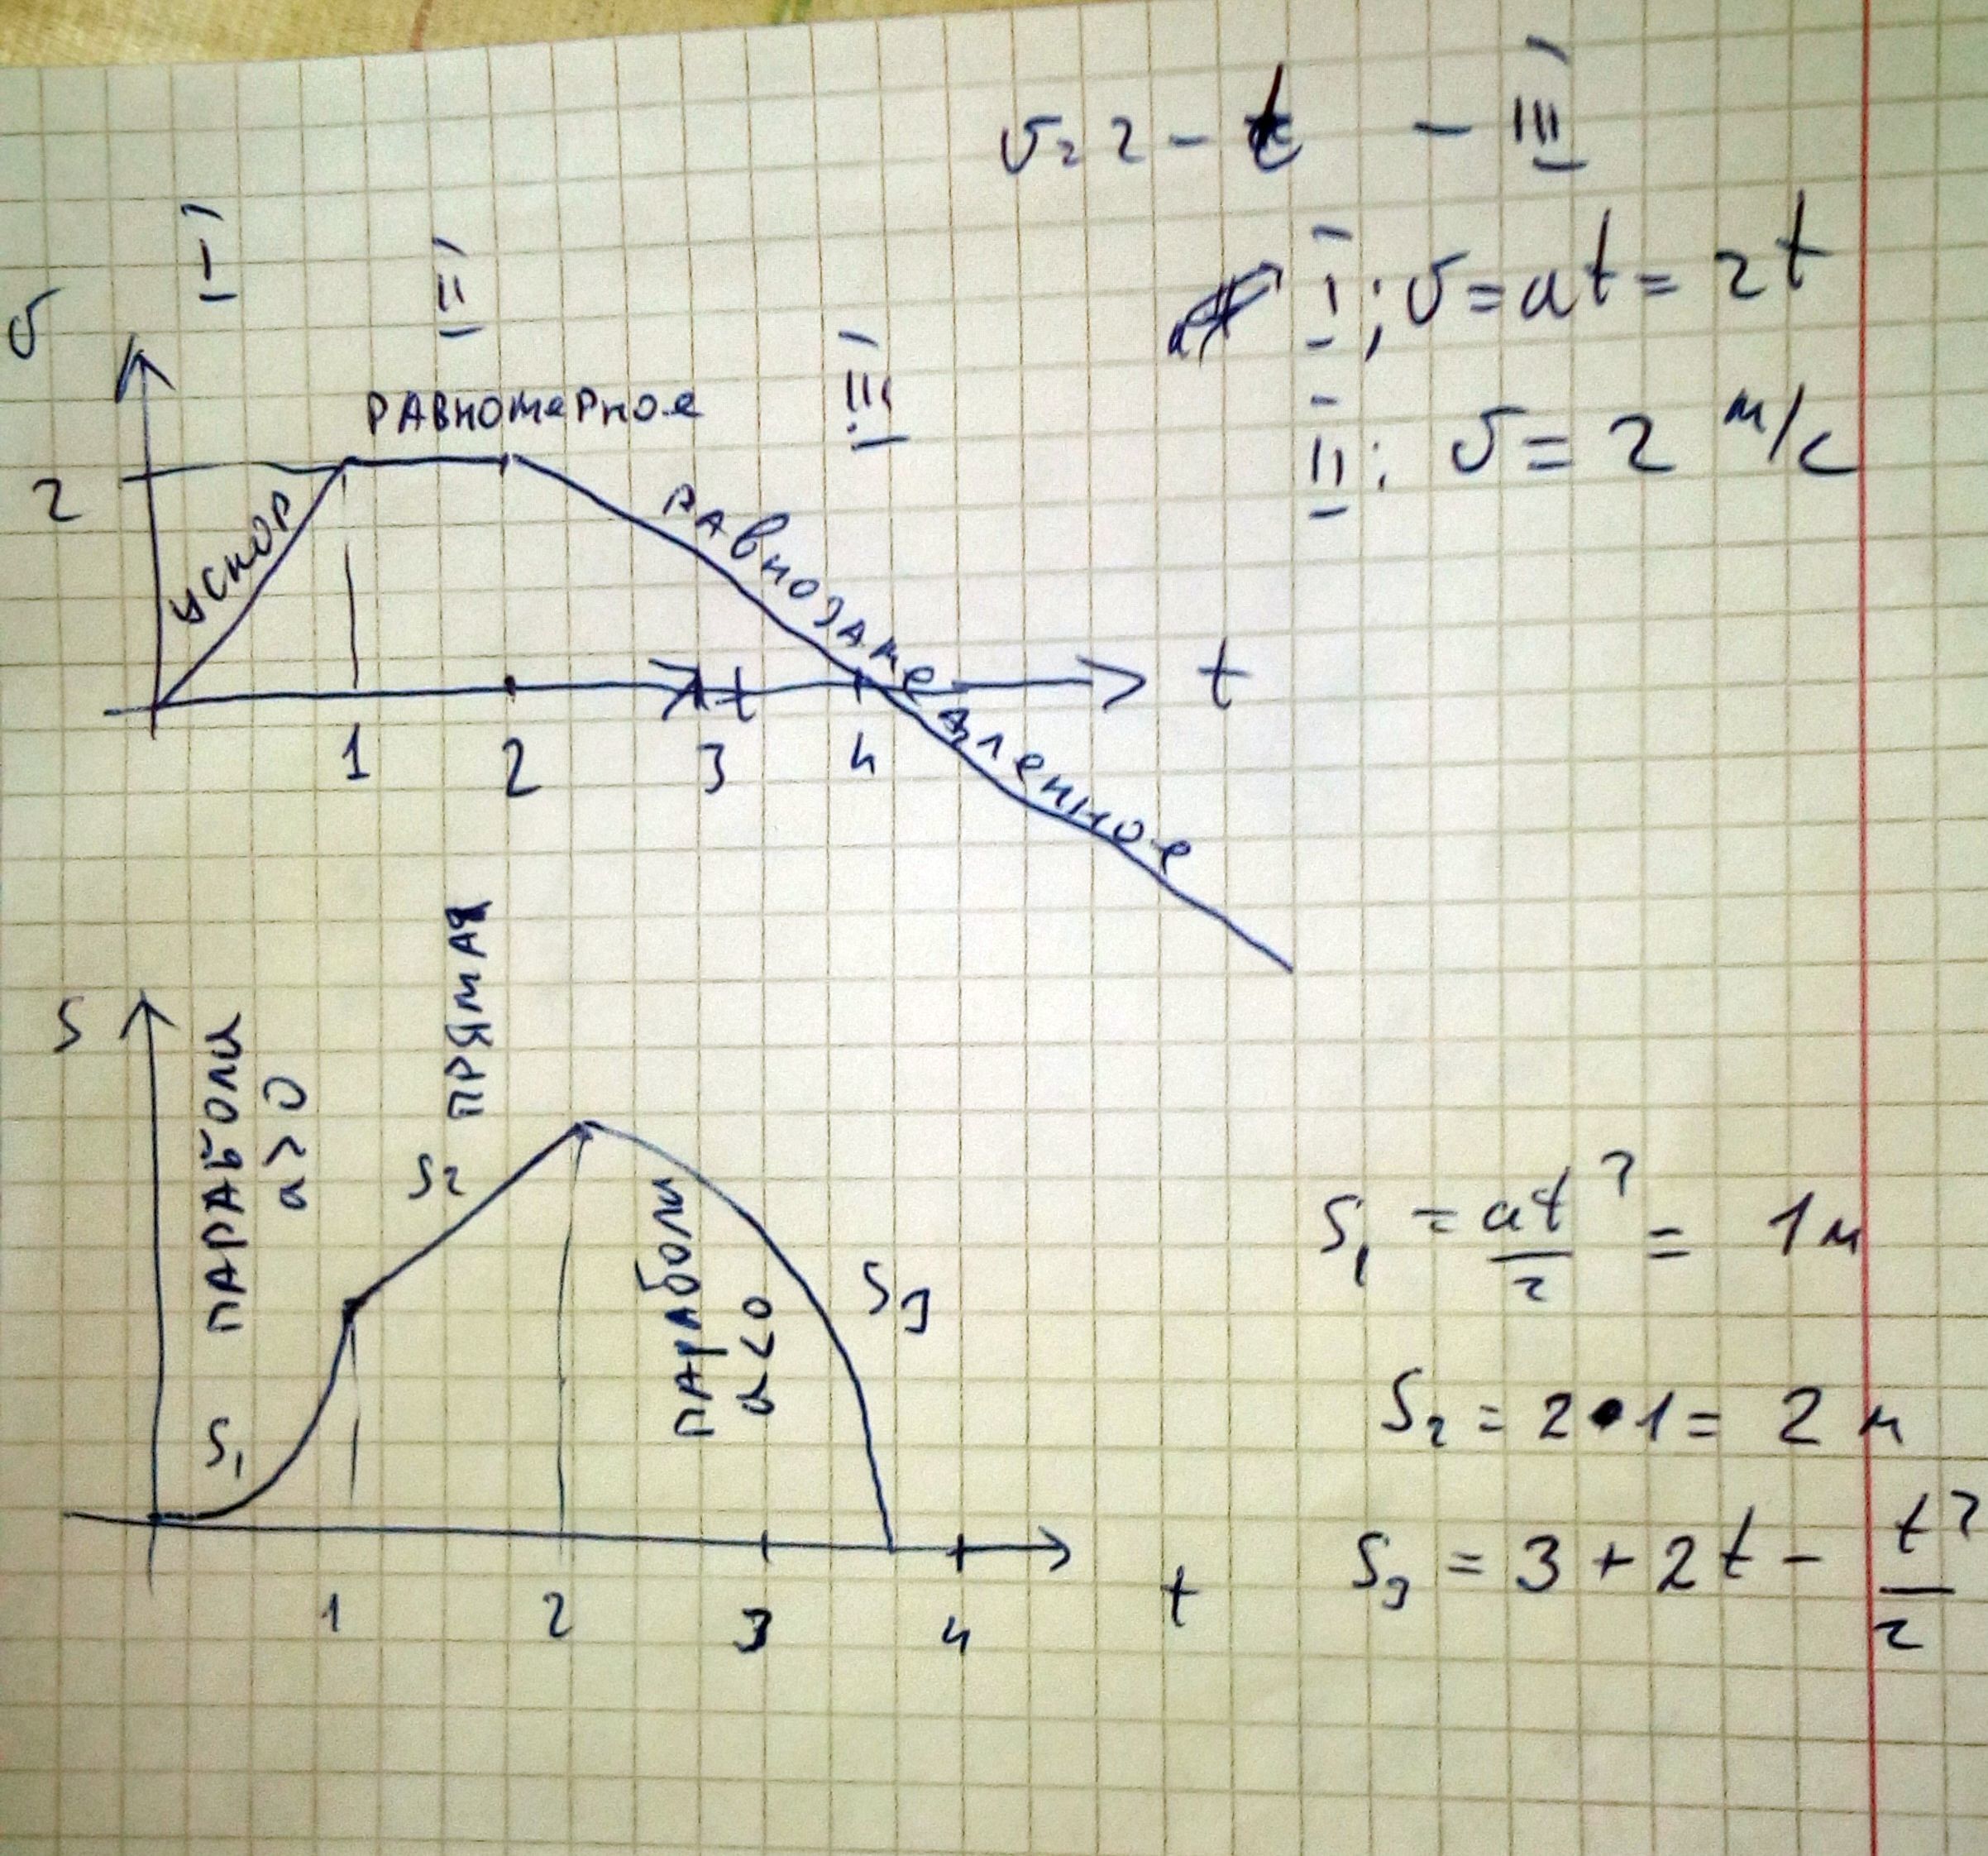 υ = 2 - t - III
I; υ = at = 2t
II: υ = 2 м/с
I
II
III
υ
2
ускор
равномерное
равнозамедленное
t
t
1 2 3 4
S
S₁
парабола
a>0
S₂
прямая
парабола
a<0
S₃
1 2 3 4
t
S₁ = at²/2 = 1 м
S₂ = 2•1 = 2 м
S₃ = 3 + 2t - t²/2